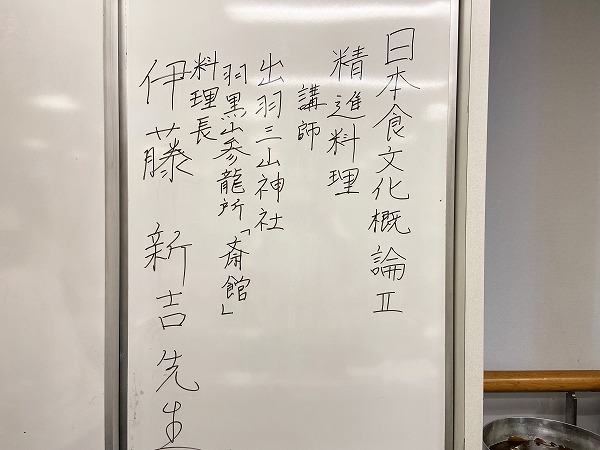 日本食文化概論Ⅱ
精進料理
講師
出羽三山神社
羽黒山参龍所「斎館」
料理長
伊藤 新吉先生